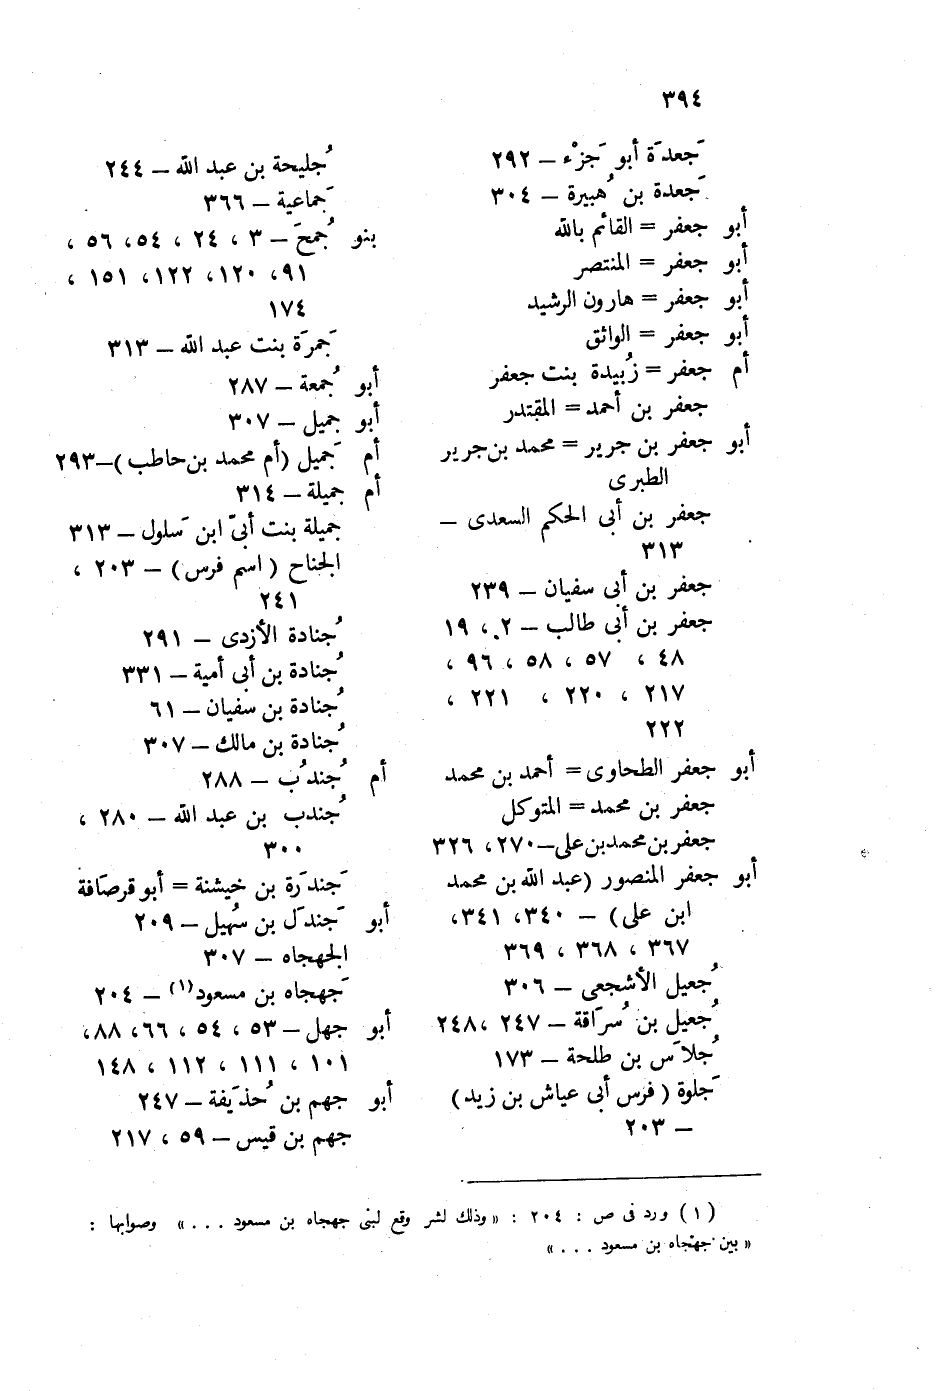 ٣٩٤
جَعدَة أبو جَزْء – ٢٩٢
جَعدة بن هُبيرة – ٣٠٤
أبو جعفر = القائم بالله
أبو جعفر = المنتصر
أبو جعفر = هارون الرشيد
أبو جعفر = الواثق
أم جعفر = زُبيدة بنت جعفر
جعفر بن أحمد = المقتدر
أبو جعفر بن جرير = محمد بن جرير
الطبرى
جعفر بن أبى الحكم السعدى –
٣١٣
جعفر بن أبى سفيان – ٢٣٩
جعفر بن أبى طالب – ٢، ١٩
٤٨ ، ٥٧ ، ٥٨ ، ٩٦ ،
٢١٧ ، ٢٢٠ ، ٢٢١ ،
٢٢٢
أبو جعفر الطحاوى = أحمد بن محمد
جعفر بن محمد = المتوكل
جعفر بن محمد بن على – ٢٧٠، ٣٢٦
أبو جعفر المنصور (عبد الله بن محمد
ابن على) – ٣٤٠، ٣٤١،
٣٦٧ ، ٣٦٨ ، ٣٦٩
جُعيل الأشجعى – ٣٠٦
جُعيل بن سُرَاقة – ٢٤٧ ،٢٤٨
جُلاَس بن طلحة – ١٧٣
جَلوة ( فرس أبى عياش بن زيد)
– ٢٠٣
جُليحة بن عبد الله – ٢٤٤
جَماعية – ٣٦٦
بنو جُمحَ – ٣ ، ٢٤ ، ٥٤، ٥٦ ،
٩١، ١٢٠، ١٢٢، ١٥١ ،
١٧٤
جَمرَة بنت عبد الله – ٣١٣
أبو جُمعة – ٢٨٧
أبو جميل – ٣٠٧
أم جَميل (أم محمد بن حاطب)–٢٩٣
أم جميلة – ٣١٤
جميلة بنت أبىّ ابن سَلول – ٣١٣
الجناح ( اسم فرس) – ٢٠٣ ،
٢٤١
جُنادة الأزدى – ٢٩١
جُنادة بن أبى أمية – ٣٣١
جُنادة بن سفيان – ٦١
جُنادة بن مالك – ٣٠٧
أم جُندُب – ٢٨٨
جُندب بن عبد الله – ٢٨٠ ،
٣٠٠
جَندَرة بن خيشنة = أبو قرصَافة
أبو جَندَل بن سُهيل – ٢٠٩
الجهجاه – ٣٠٧
جَهجاه بن مسعود(١) – ٢٠٤
أبو جهل – ٥٣ ، ٥٤ ، ٦٦، ٨٨،
١٠١ ، ١١١ ، ١١٢ ، ١٤٨
أبو جهم بن حُذَيفة – ٢٤٧
جهم بن قيس – ٥٩ ، ٢١٧
(١) ورد فى ص : ٢٠٤ : «وذلك لشر وقع لبنى جهجاه بن مسعود . . . » وصوابها :
« بين جهجاه بن مسعود . . . »